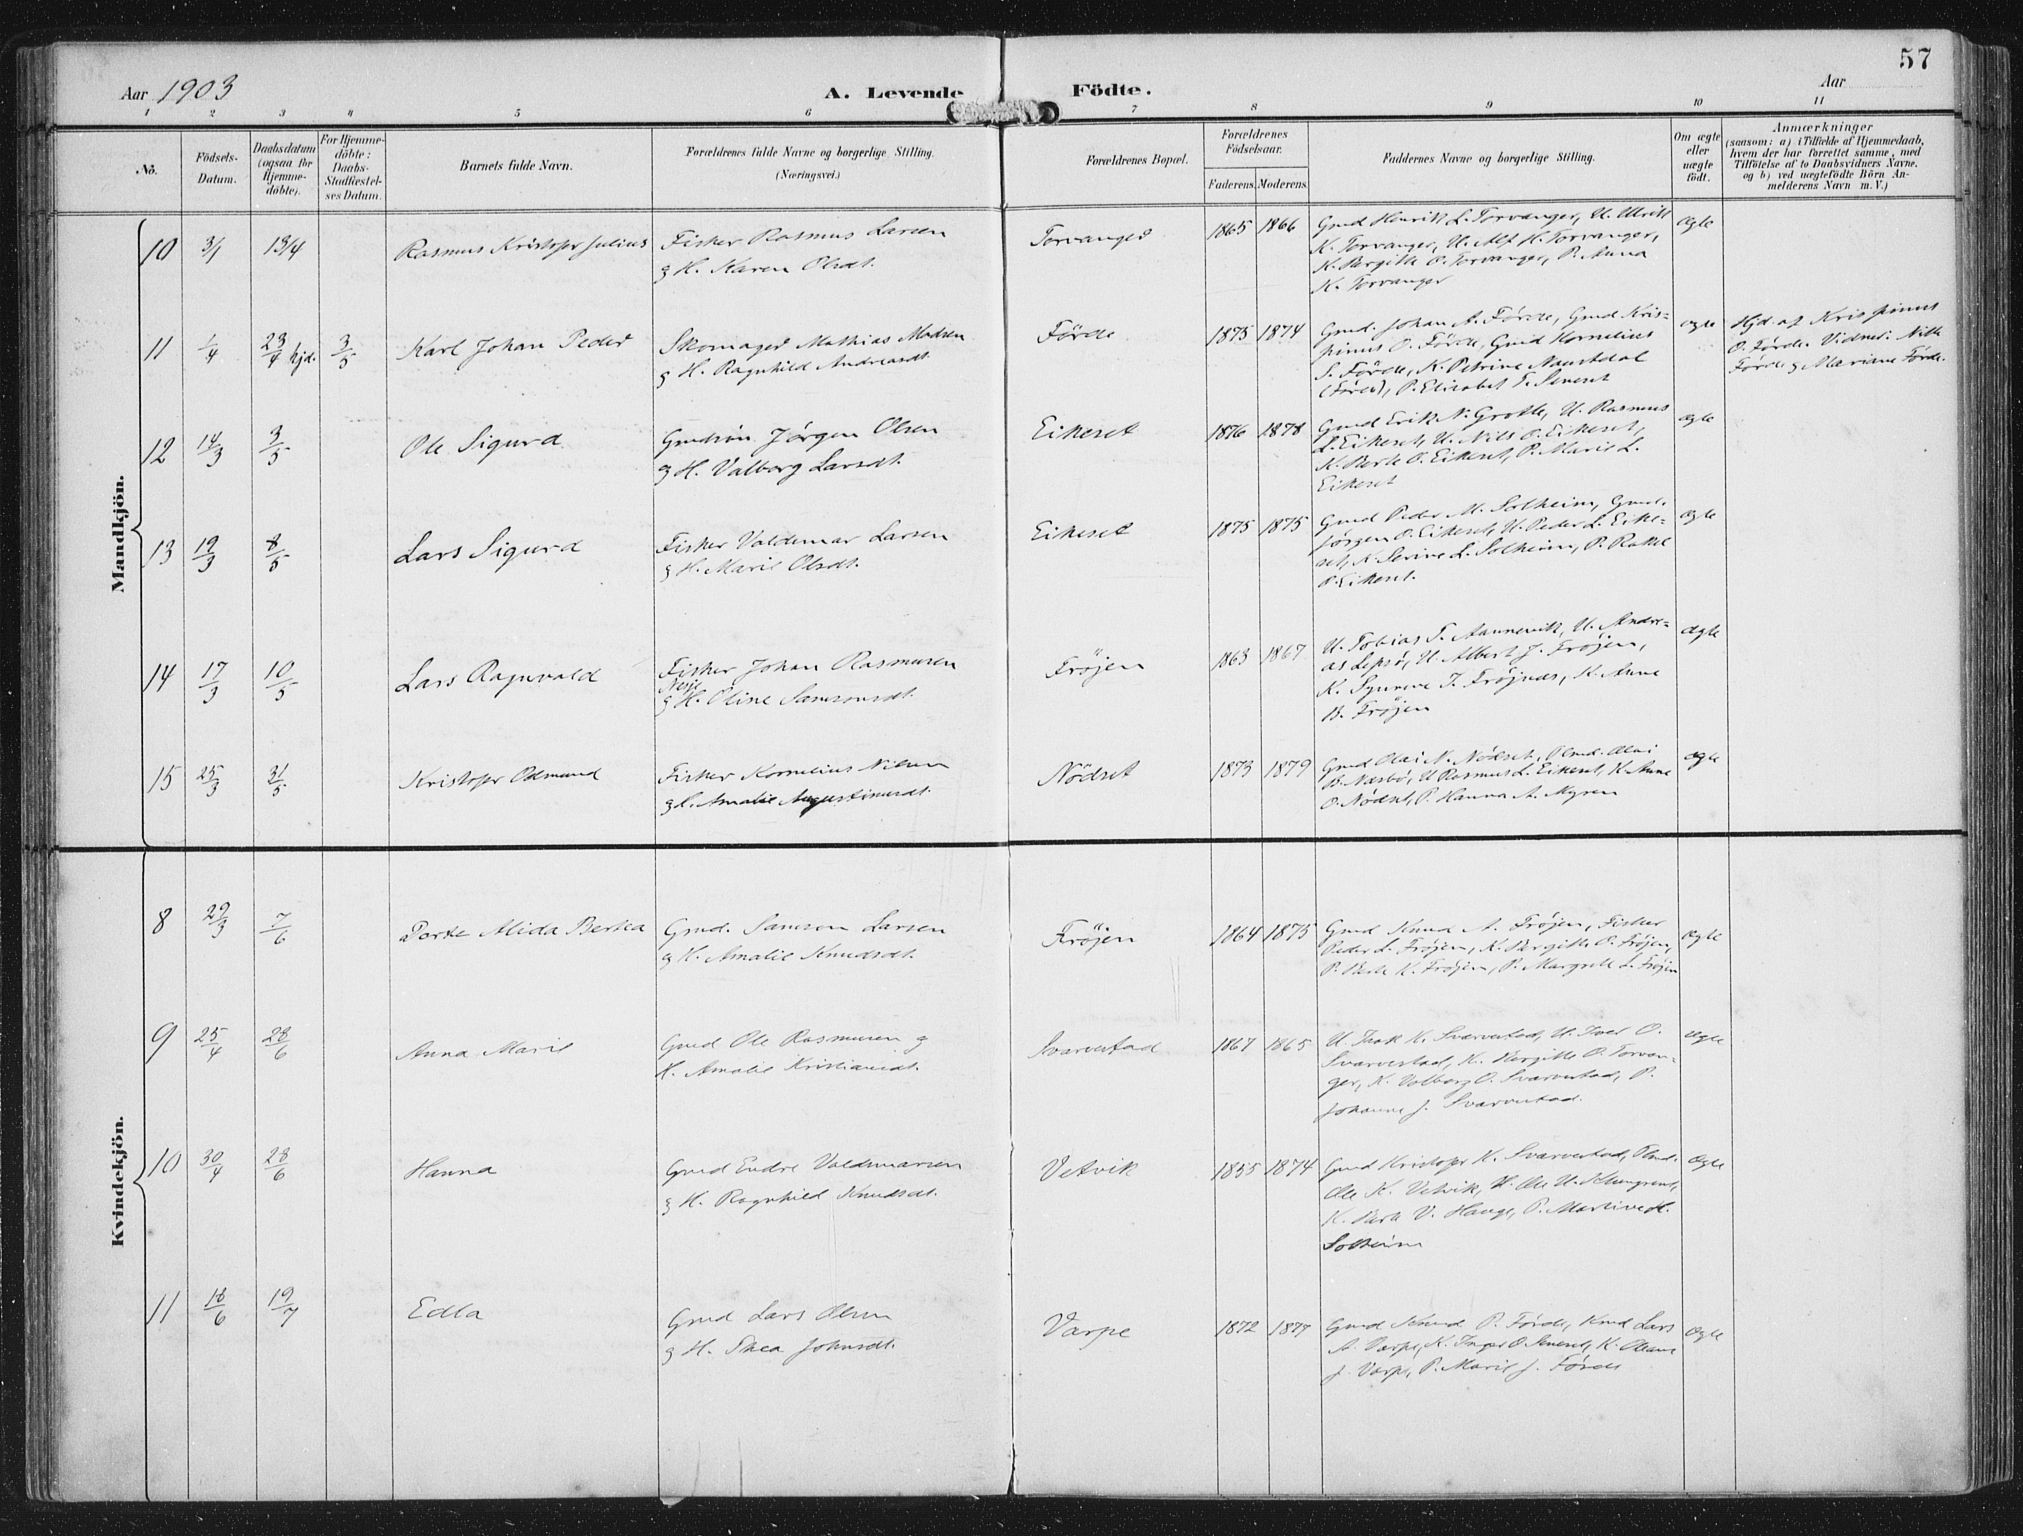 57
Aar 1903
A. Levende
Födte.
Aar
1 2 3 4 5 6 7 8 9 10 11
No.
Födsels-Datum.
Daabsdatum (ogsaa for Hjemme-döbte).
For Hjemme-döbte: Daabs-Stadfæstel-ses Datum.
Barnets fulde Navn.
Forældrenes fulde Navne og borgerlige Stilling.
(Næringsvei.)
Forældrenes Bopæl.
Forældrenes Födselsaar.
Faderens. Moderens.
Faddernes Navne og borgerlige Stilling.
Om ægte eller uægte födt.
Anmærkninger
(saasom: a) i Tilfælde af Hjemmedaab,
hvem der har forrettet samme, med
Tilföielse af to Daabsvidners Navne,
og b) ved uægtefödte Börn An-
melderens Navn m.V.)
Mandkjön.
10 3/1 13/4 Rasmus Kristofer Julius
Fisker Rasmus Larsen
g H. Karen Olsdt.
Torvanger 1865 1866
Gmd Henrik L. Torvanger, U. Ulrik
K. Torvanger, U. Alf H. Torvanger,
K. Bergitte O. Torvanger, P. Anna
K. Torvanger
ægte
11 1/4 23/4 hjd. 3/5 Karl Johan Peder
Skomager Mathias Madsen
g H. Ragnhild Andreasdt.
Förde 1875 1874
Gmd. Johan A. Förde, Gmd Kris-
pinus O. Förde, Gmd Kornelius
S. Förde, K. Petrine Naustdal
(Förde), P. Elisabet T. Seneset
ægte
Hjd. af Krispinus
O. Förde. Vidner: Nille
Förde g Mariane Förde.
12 14/3 3/5 Ole Sigurd
Gmdsön Jörgen Olsen
g H. Valborg Larsdt.
Eikeset 1876 1878
Gmd Erik N. Grotle, U. Rasmus
L. Eikeset, U. Nils O. Eikeset,
K. Berte O. Eikeset, P. Marie L.
Eikeset
ægte
13 19/3 8/5 Lars Sigurd
Fisker Valdemar Larsen
g H. Marie Olsdt.
Eikeset 1875 1875
Gmd Peder M. Solheim, Gmd.
Jörgen O. Eikeset, U. Peder L. Eike-
set, K. Serine L. Solheim, P. Rakel
O. Eikeset.
ægte
14 17/3 10/5 Lars Ragnvald
Fisker Johan Rasmusen
Nesje
g H. Oline Samsonsdt.
Fröjen 1863 1867
U. Tobias T. Aannevik, U. Andre-
as Lepsö, U. Albert J. Fröjen,
K. Synneve I. Fröjnæs, K. Anne
B. Fröjen
ægte
15 25/3 31/5 Kristofer Odmund
Fisker Kornelius Nilsen
g H. Amalie Augustinusdt.
Nödset 1873 1879
Gmd Olai N. Nödset, Olai
B. Næsbö, U Rasmus L. Eikeset, K. Anne
O. Nödset, P. Hanna A. Myren
ægte
Kvindekjön.
8 29/3 7/6 Dorte Alida Bertea
Gmd. Samson Larsen
g H. Amalie Knudsdt.
Fröjen 1864 1875
Gmd Knud A. Fröjen, Fisker
Peder L. Fröjen, K. Bergitte O. Fröjen,
P. Berte K. Fröjen, P. Margrete L. Fröjen
ægte
9 25/4 28/6 Anna Marie
Gmd Ole Rasmusen g
H. Amalie Kristiansdt.
Svarvestad 1867 1865
U. Isak K. Svarvestad, U. Iver O.
Svarvestad, K. Bergitte O. Torvan-
ger, K. Valborg O. Svarvestad, P.
Johanne J. Svarvestad.
ægte
10 30/4 28/6 Hanna
Gmd Endre Valdemarsen
g H. Ragnhild Knudsdt.
Vetvik 1855 1874
Gmd Kristofer K. Svarvestad,
Ole K. Vetvik, U. Ole
K. Berte V. Hauge, P. Martine H.
Solheim
ægte
11 18/6 19/7 Edla
Gmd Lars Olsen
g H. Thea Johnsdt.
Varpe 1872 1877
Gmd Knud P. Förde, Lars
A. Varpe, K. Inger O. Seneset, K. Oleane
J. Varpe, P. Marie J. Förde
ægte